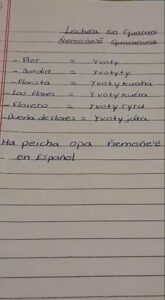 Lectura en Guaraní
Ñemoñe'ẽ Guaraníme
- Flor = Yvoty
- Jardín = Yvotyty
- Florista = Yvoty
- Las Flores = Yvoty kuéra
- Florero = Yvoty ryru
- Dueña de Flores = Yvoty jára
Ha peicha opa ñemoñe'ẽ
en Español